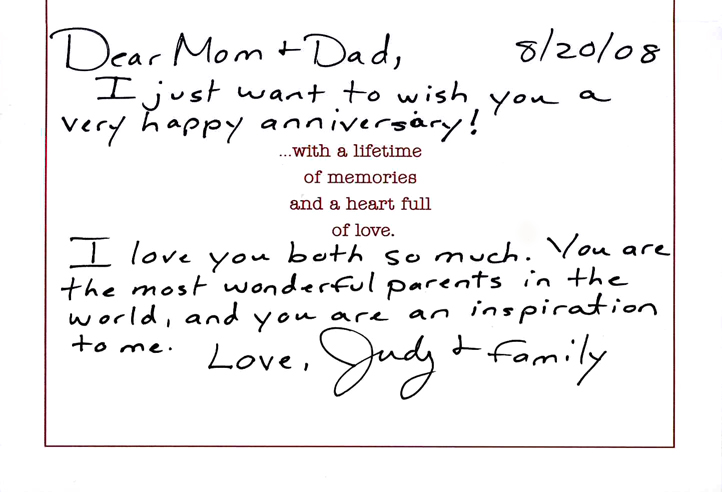 Dear Mom + Dad, 8/20/08
I just want to wish you a
very happy anniversary!
...with a lifetime
of memories
and a heart full
of love.
I love you both so much. You are
the most wonderful parents in the
world, and you are an inspiration
to me. Love, Judy + family